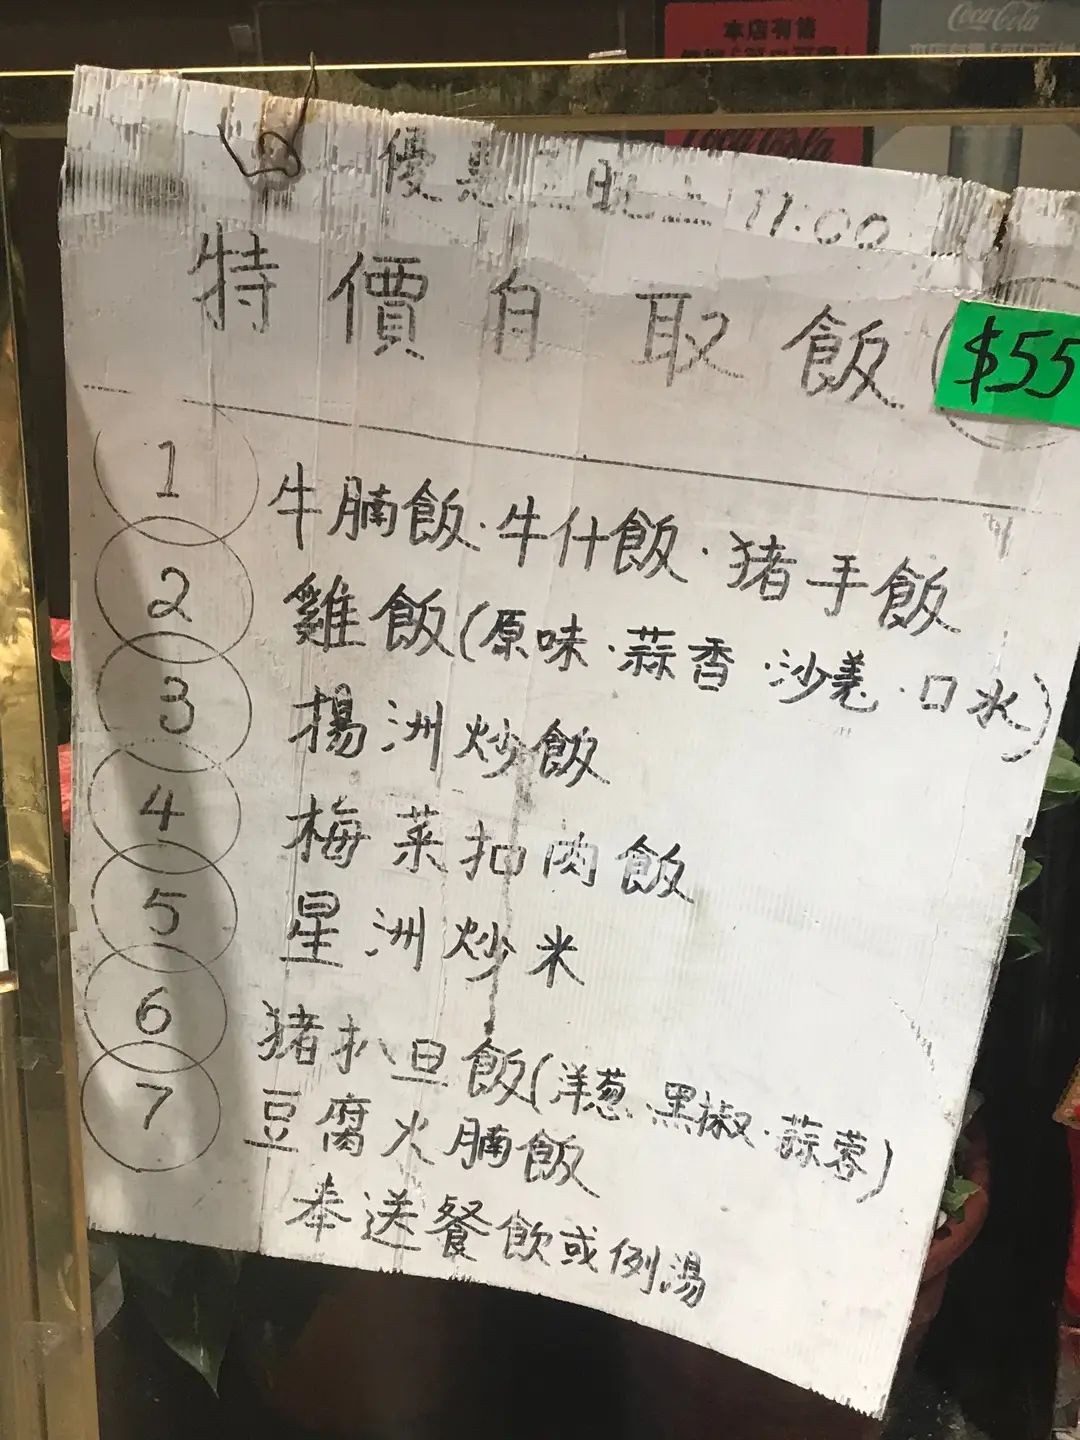 本店有售
Coca-Cola
Coca-Cola
優惠至晚上11:00
特價自取飯
$55
1 牛腩飯·牛什飯·猪手飯
2 雞飯(原味·蒜香·沙羗·口水)
3 揚洲炒飯
4 梅菜扣肉飯
5 星洲炒米
6 猪扒旦飯(洋葱·黑椒·蒜蓉)
7 豆腐火腩飯
奉送餐飲或例湯